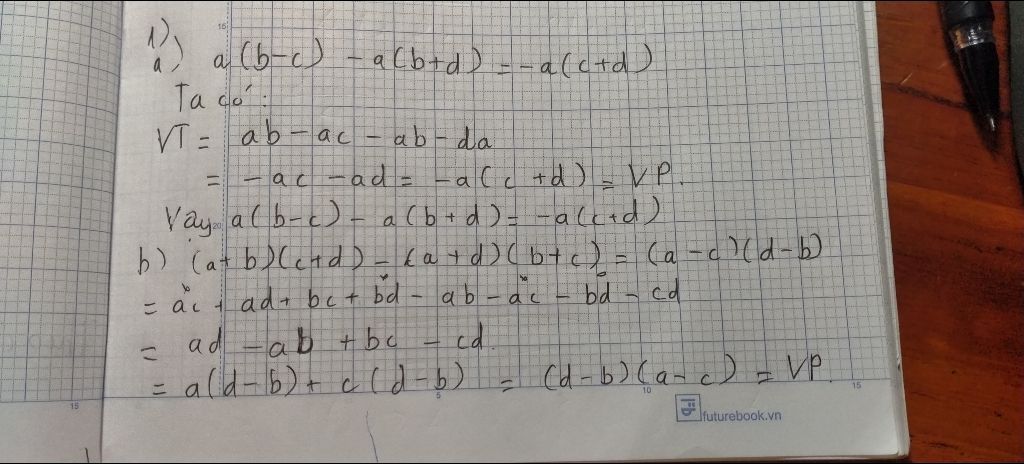 1)
a) a(b-c) - a(b+d) = -a(c+d)
Ta có:
VT = ab - ac - ab - da
= -ac - ad = -a(c+d) = VP.
Vậy a(b-c) - a(b+d) = -a(c+d)
b) (a+b)(c+d) - (a+d)(b+c) = (a-c)(d-b)
= ac + ad + bc + bd - ab - ac - bd - cd
= ad - ab + bc - cd.
= a(d-b) + c(d-b) = (d-b)(a-c) = VP.
15 5 10 15
futurebook.vn